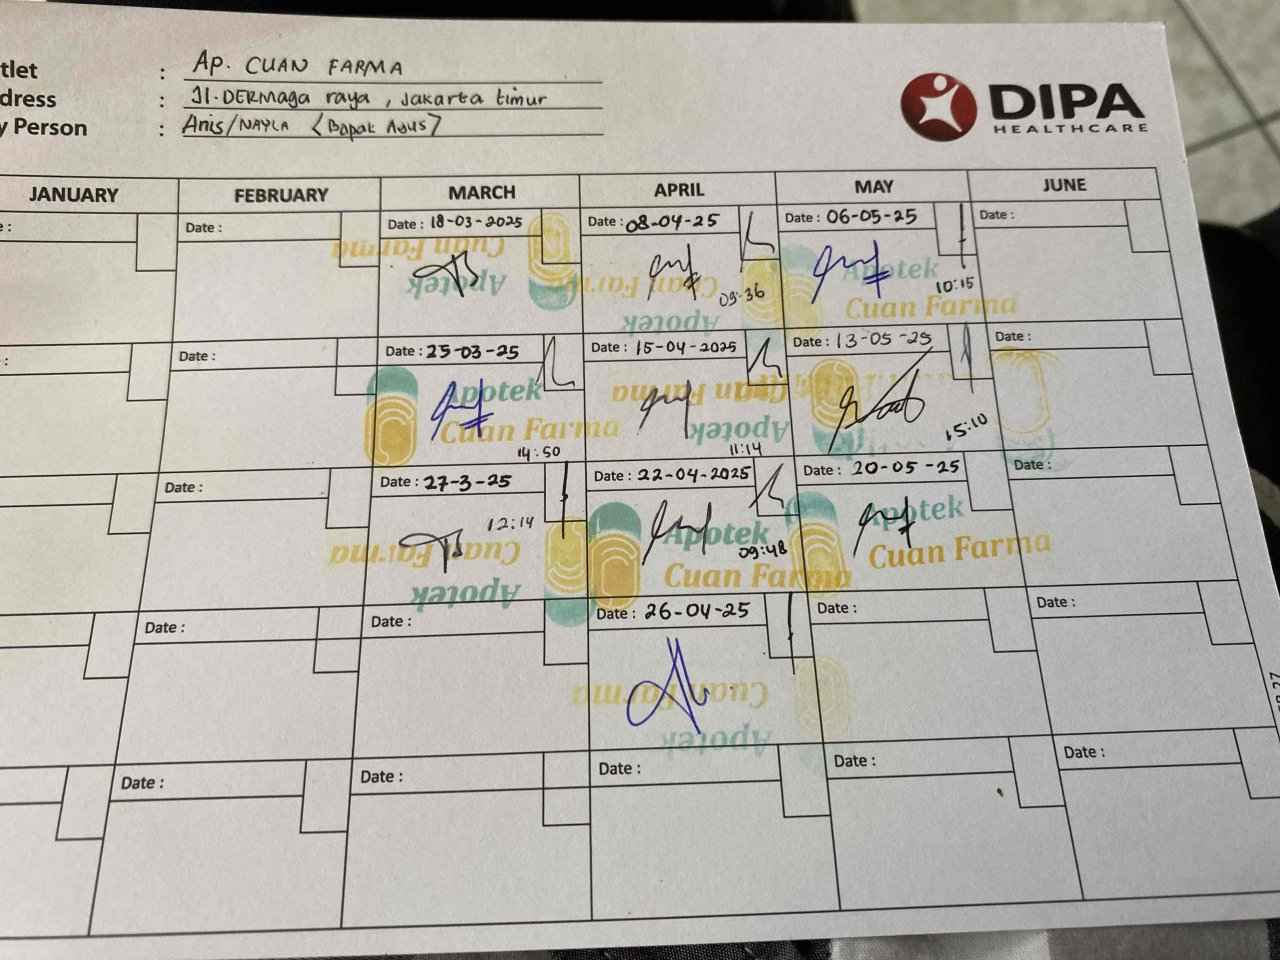 tlet : Ap. CUAN FARMA
dress : Jl. DERMAga raya, Jakarta timur
y Person : Anis/NAYLA (Bapak Agus)
DIPA
HEALTHCARE
JANUARY FEBRUARY MARCH APRIL MAY JUNE
e : Date : Date : 18-03-2025 Date : 08-04-25 Date : 06-05-25 Date :
Cuan Farma
Apotek
Cuan Farma
Apotek
09:36
Apotek
Cuan Farma
10:15
: Date : Date : 25-03-25 Date : 15-04-2025 Date : 13-05-25 Date :
Apotek
Cuan Farma
14:50
Cuan Farma
Apotek
11:14
15:10
Date : Date : 27-3-25 Date : 22-04-2025 Date : 20-05-25 Date :
12:14
Cuan Farma
Apotek
Apotek
Cuan Farma
09:48
Apotek
Cuan Farma
Date : Date : Date : 26-04-25 Date : Date :
Cuan Farma
Apotek
Date : Date : Date : Date : Date :